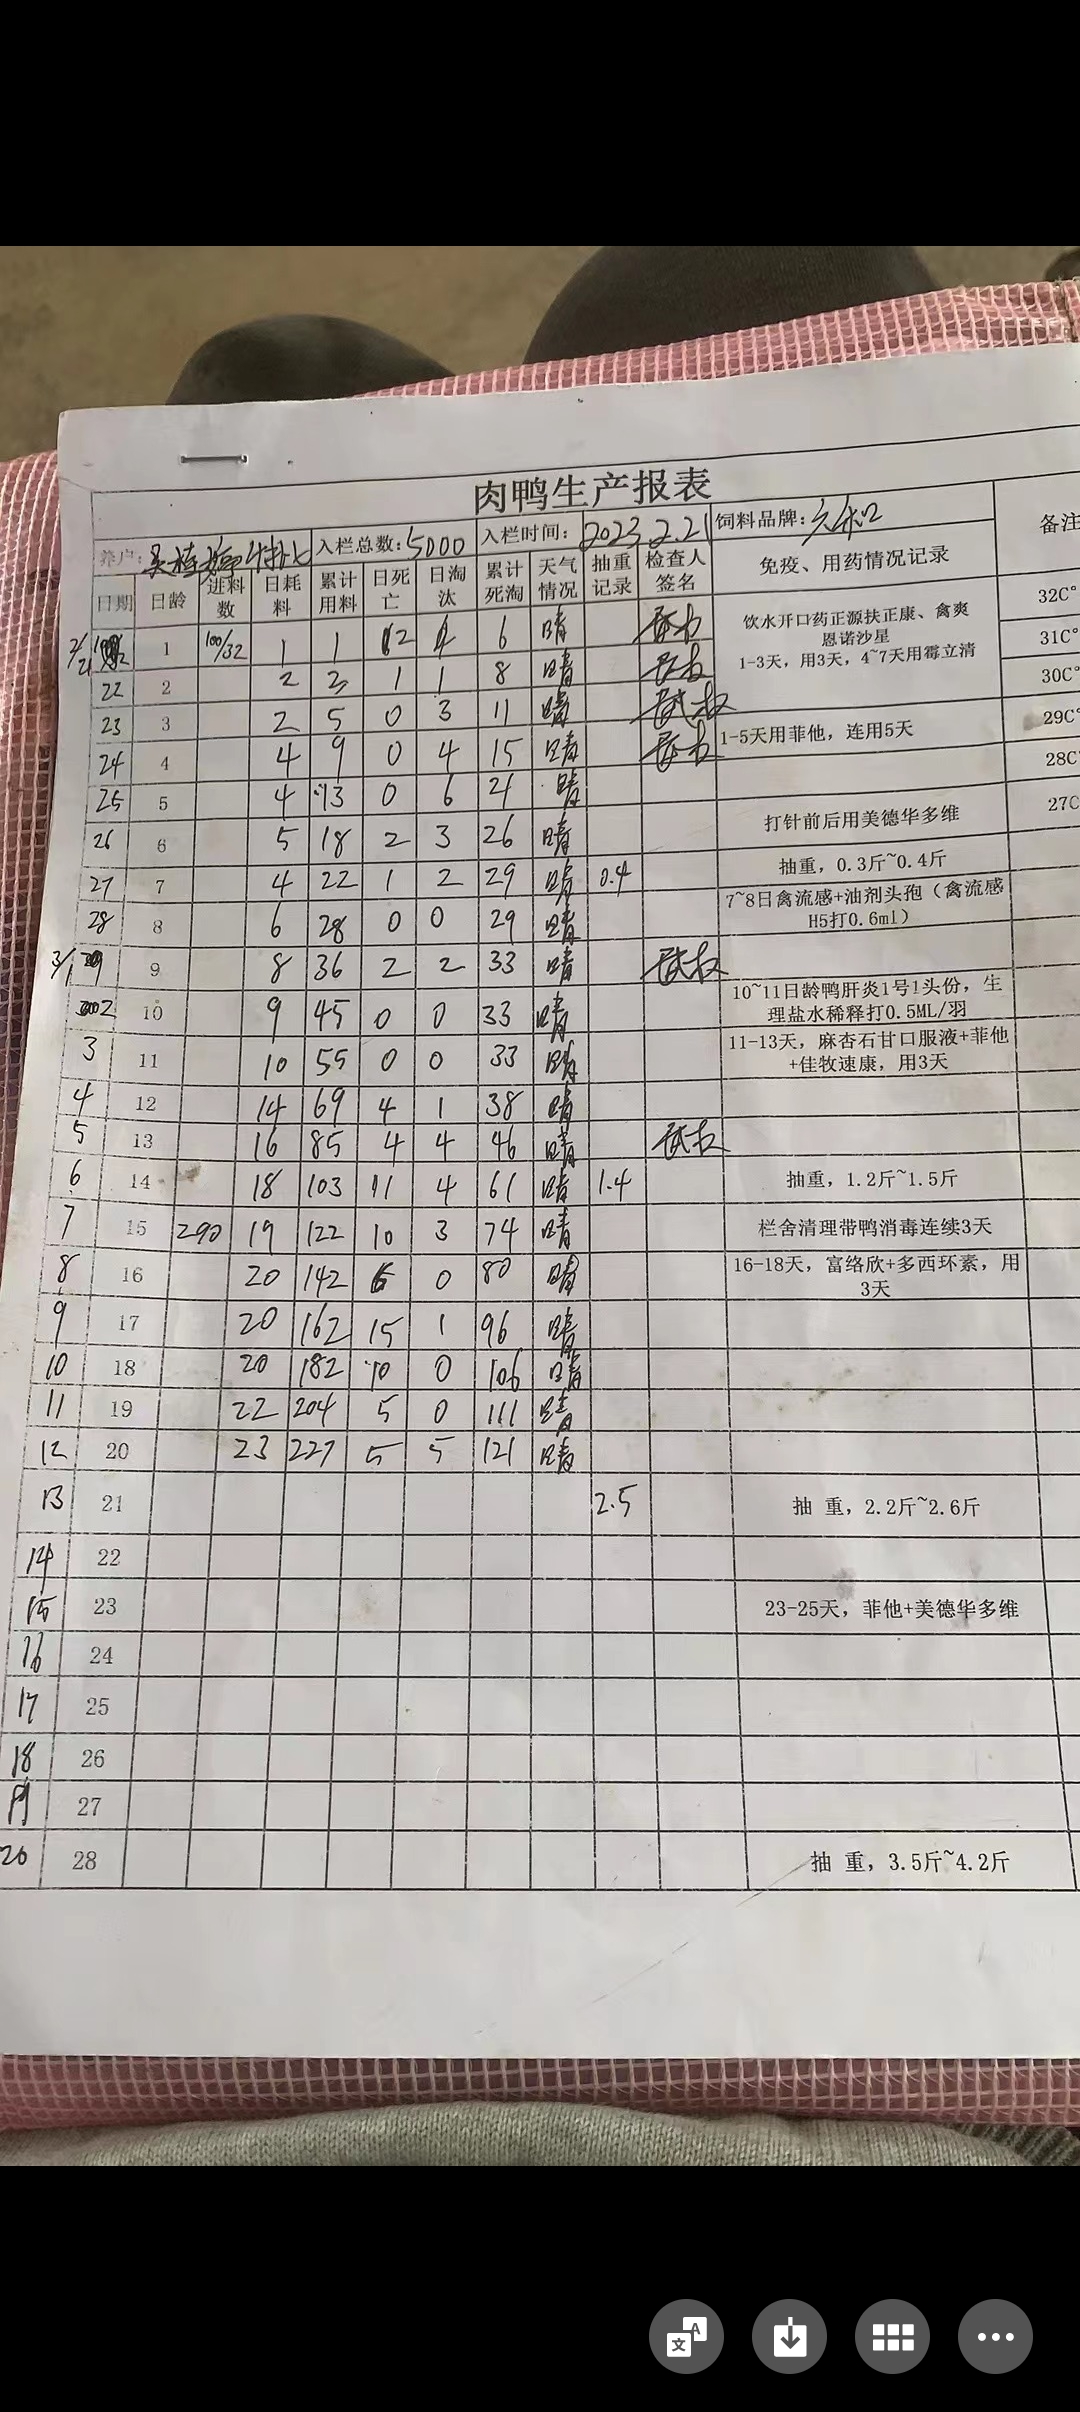 肉鸭生产报表
养户: 入栏总数:5000 入栏时间:2023.2.21 饲料品牌:六和 备注
日期 日龄 进料数 日耗料 累计用料 日死亡 日淘汰 累计死淘 天气情况 抽重记录 检查人签名 免疫、用药情况记录
2/21 1 100/32 1 1 2 4 6 晴 饮水开口药正源扶正康、禽爽 32C°
恩诺沙星 31C°
22 2 2 3 1 1 8 晴 1-3天，用3天，4~7天用霉立清 30C°
23 3 2 5 0 3 11 晴 29C°
24 4 4 9 0 4 15 晴 1-5天用菲他，连用5天 28C°
25 5 4 13 0 6 21 晴 27C
26 6 5 18 2 3 26 晴 打针前后用美德华多维
27 7 4 22 1 2 29 晴 0.4 抽重，0.3斤~0.4斤
28 8 6 28 0 0 29 晴 7~8日禽流感+油剂头孢（禽流感
H5打0.6ml）
3/1 9 8 36 2 2 33 晴
2 10 9 45 0 0 33 晴 10~11日龄鸭肝炎1号1头份，生
理盐水稀释打0.5ML/羽
3 11 10 55 0 0 33 晴 11-13天，麻杏石甘口服液+菲他
+佳牧速康，用3天
4 12 14 69 4 1 38 晴
5 13 16 85 4 4 46 晴
6 14 18 103 11 4 61 晴 1.4 抽重，1.2斤~1.5斤
7 15 290 19 122 10 3 74 晴 栏舍清理带鸭消毒连续3天
8 16 20 142 6 0 80 晴 16-18天，富络欣+多西环素，用
3天
9 17 20 162 15 1 96 晴
10 18 20 182 10 0 106 晴
11 19 22 204 5 0 111 晴
12 20 23 227 5 5 121 晴
13 21 2.5 抽 重，2.2斤~2.6斤
14 22
15 23 23-25天，菲他+美德华多维
16 24
17 25
18 26
19 27
20 28 抽 重，3.5斤~4.2斤